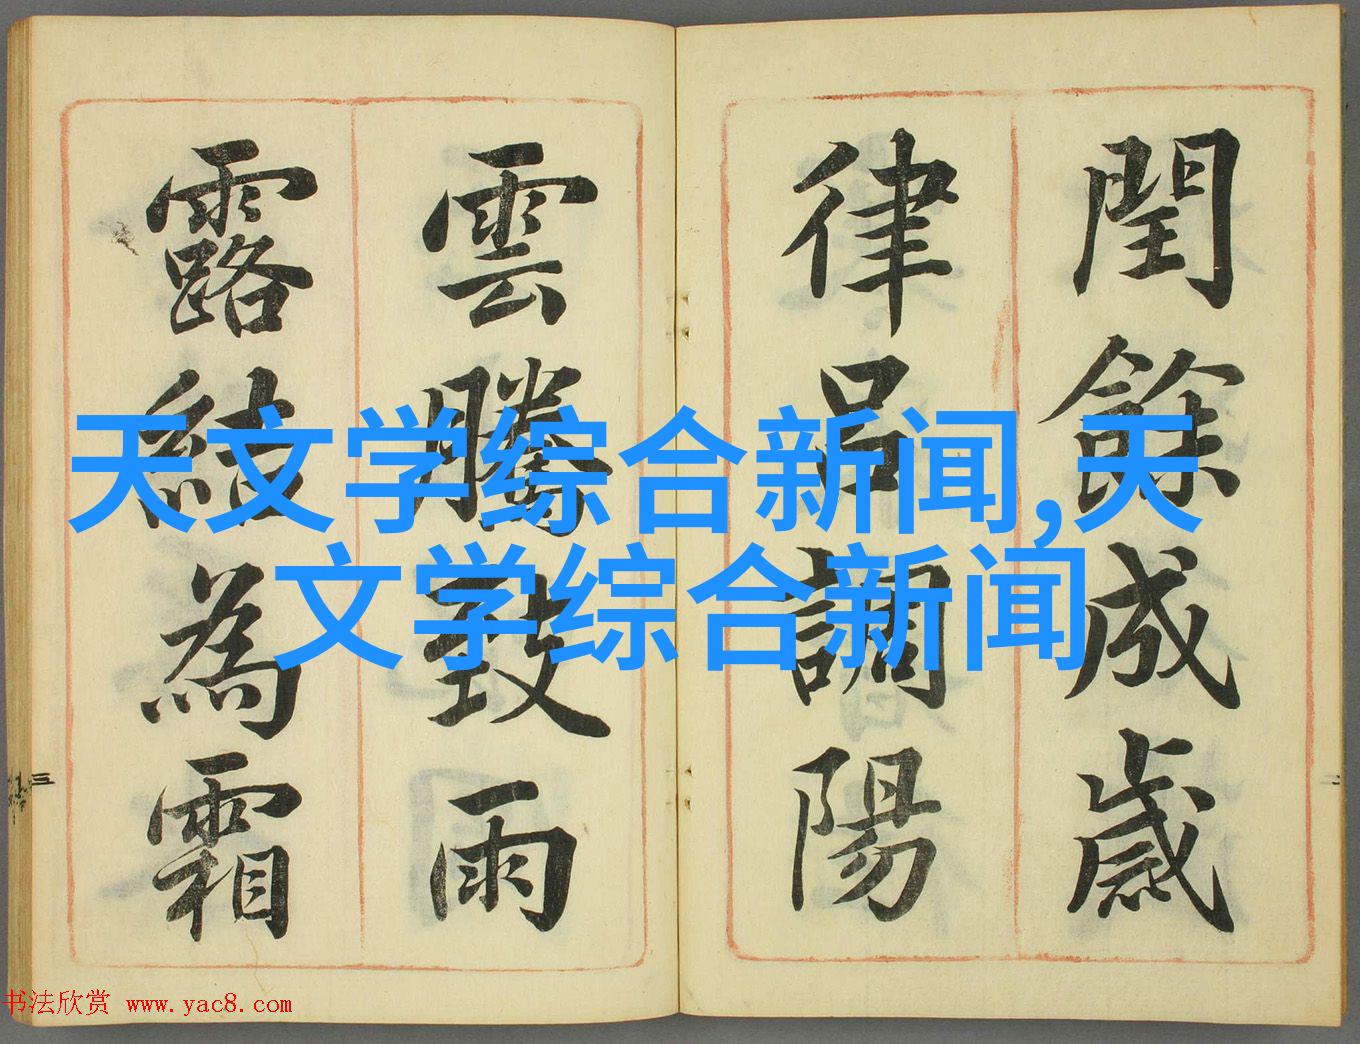 閏餘成歲
律呂調陽
雲騰致雨
露結為霜
天文学综合新闻,天
文学综合新闻
三
书法欣赏 www.yac8.com